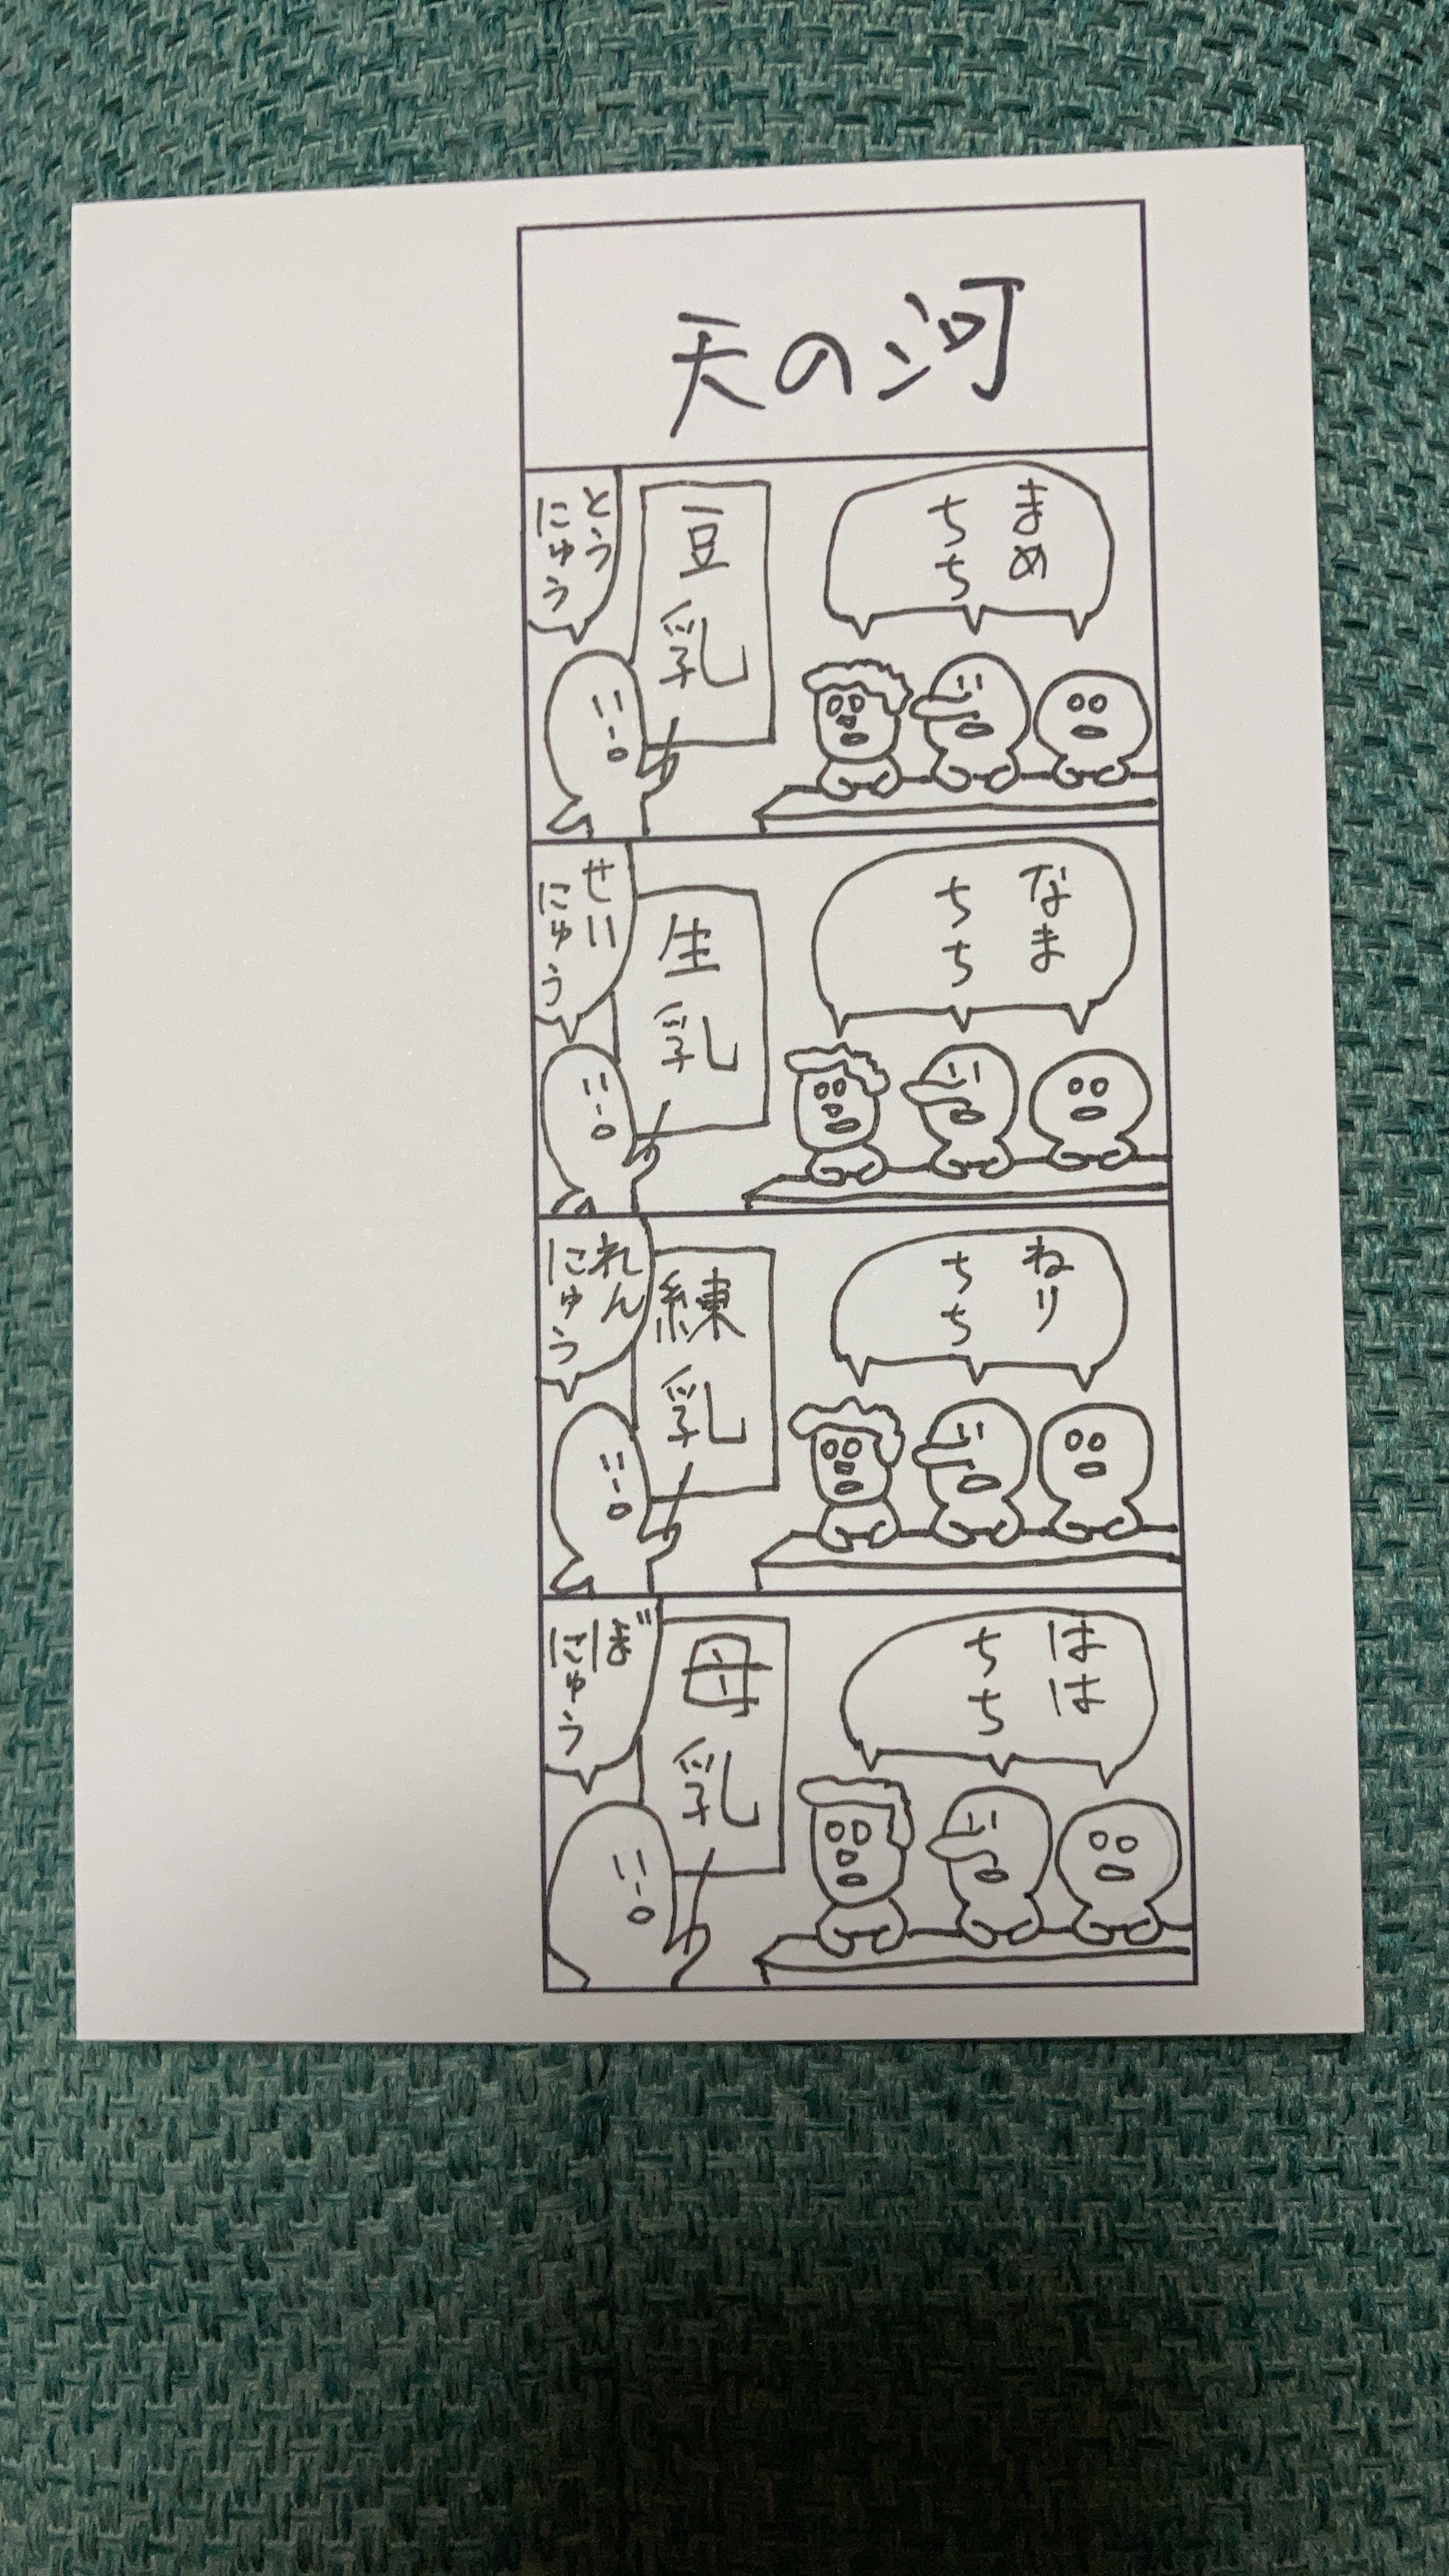 天の河
まめ
ちち
豆乳
とう
にゅう
なま
ちち
生乳
せい
にゅう
ねり
ちち
練乳
れん
にゅう
はは
ちち
母乳
ぼ
にゅう